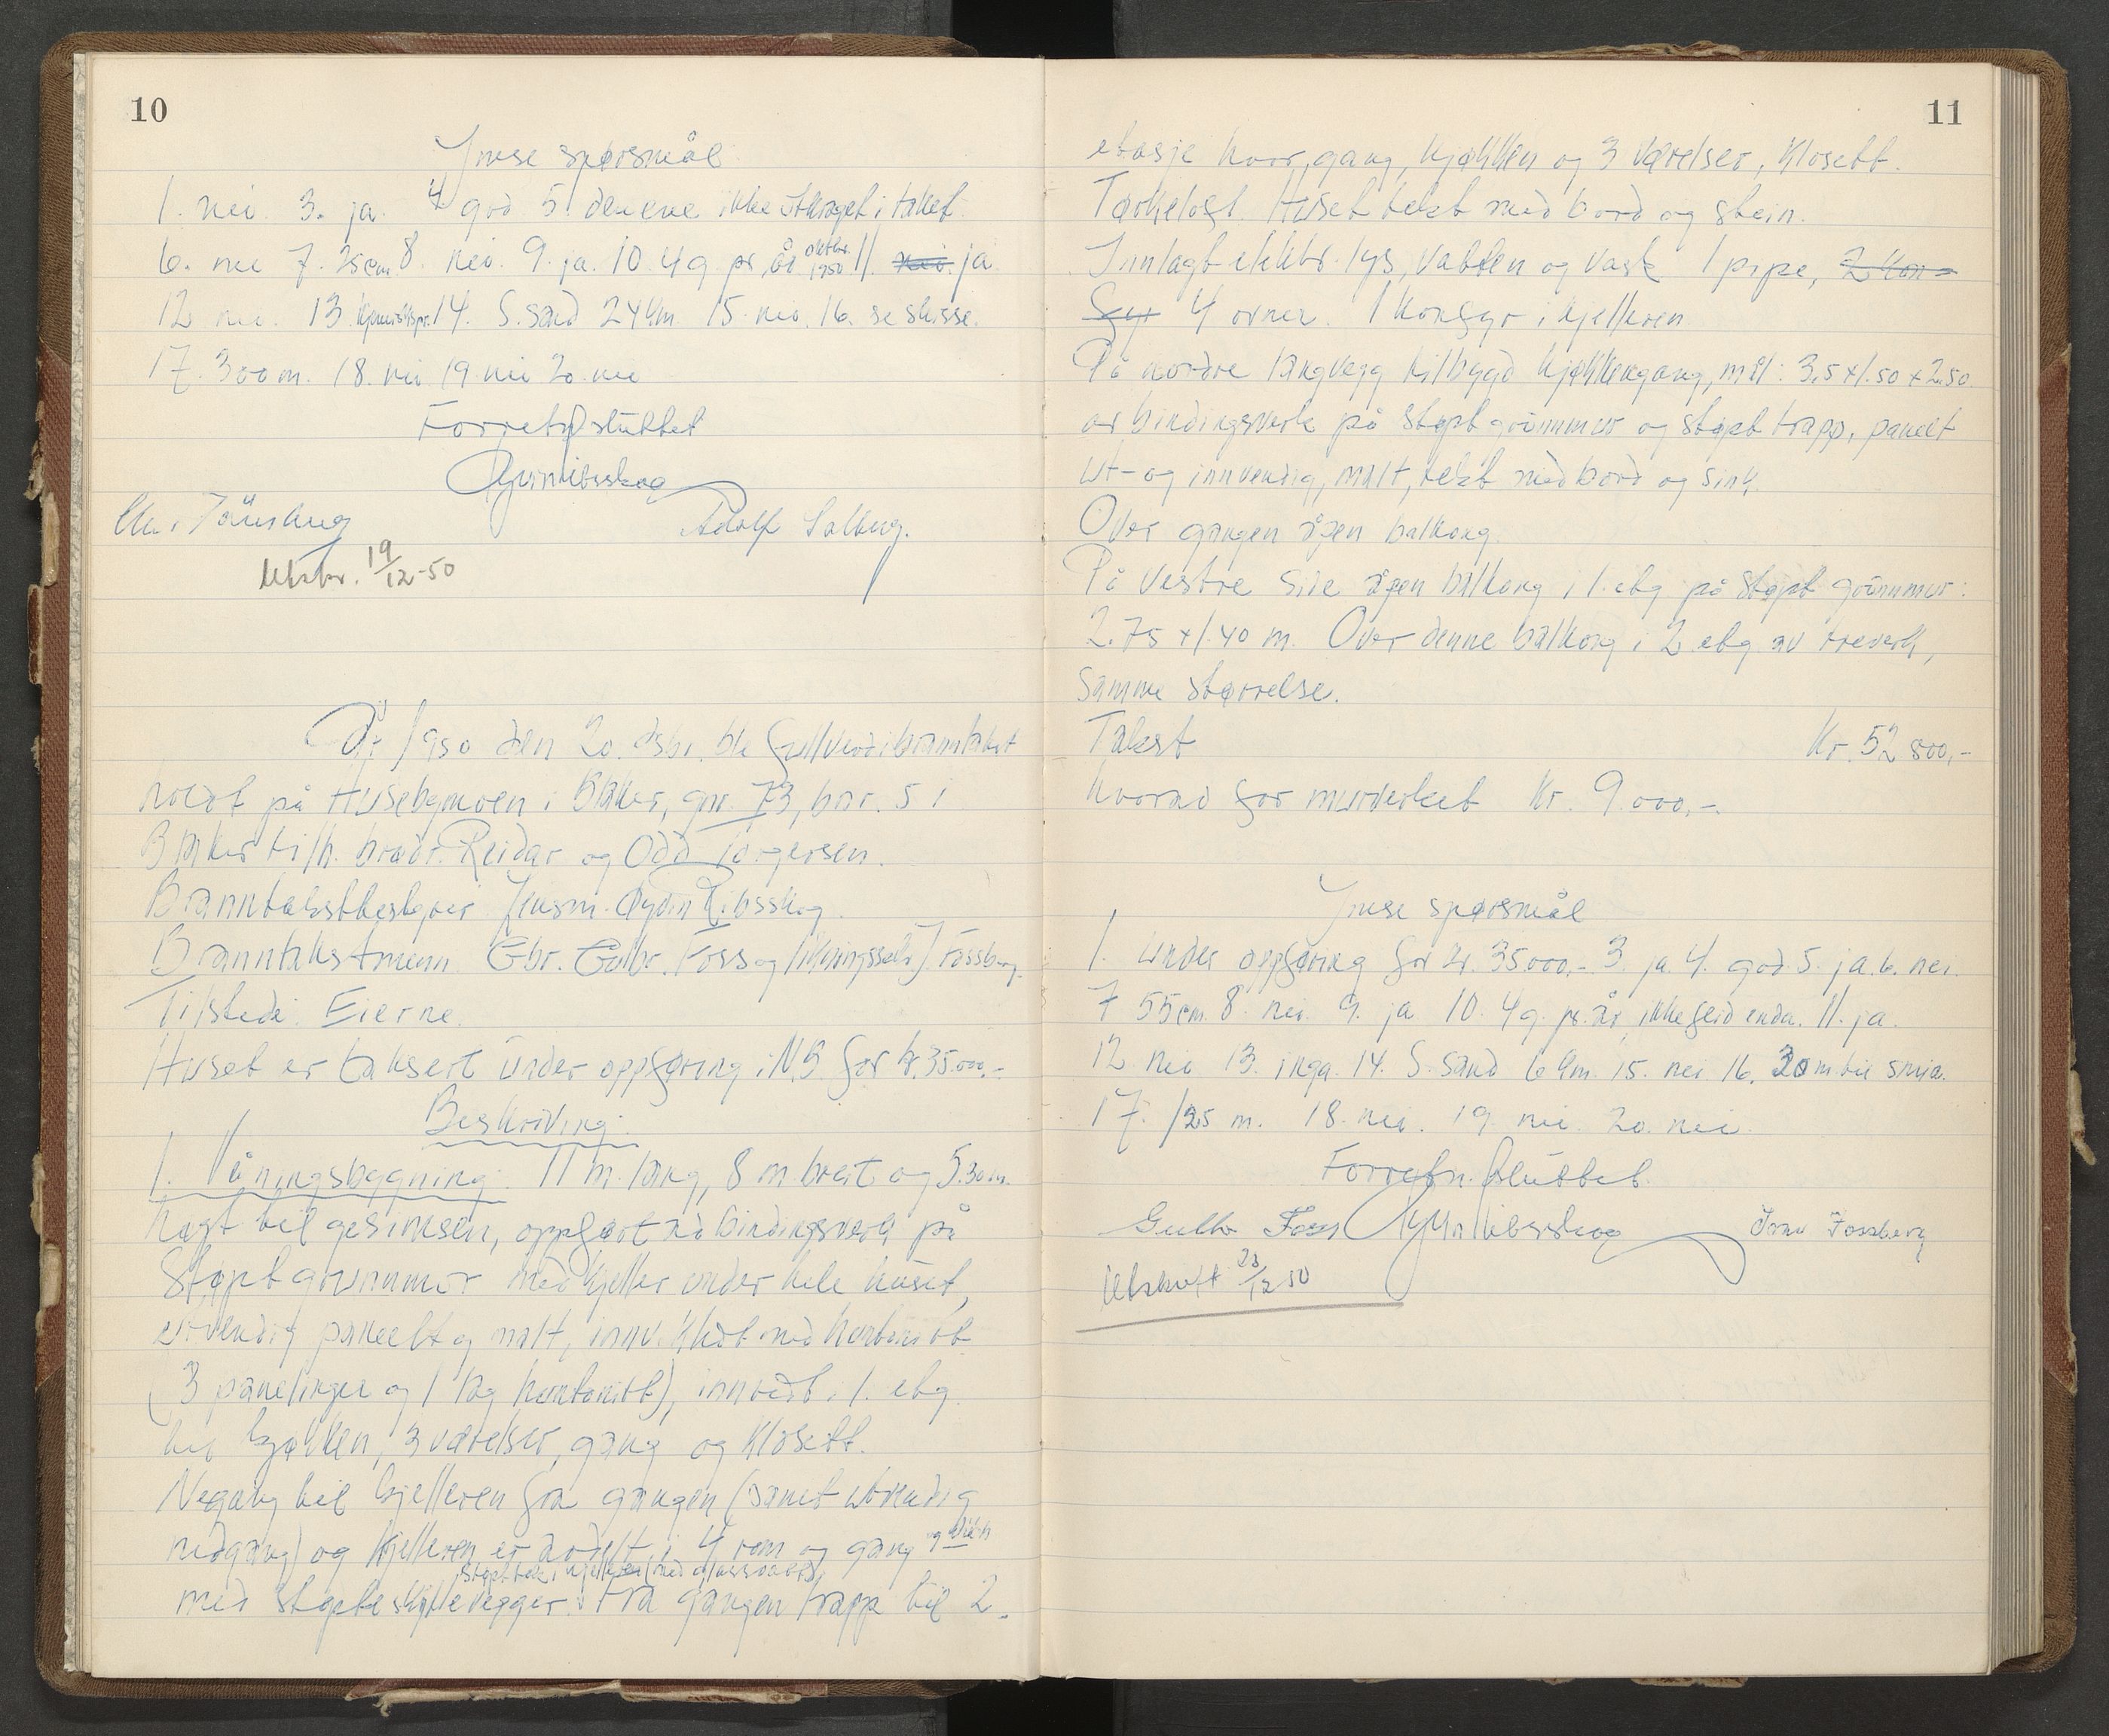 10
Ymse spørsmål
1. nei 3. ja. 4 god 5. denene ikke i taket
6. nei 7. 25cm 8. nei. 9. ja. 10. 4 g. pr. år oktbr. 1950 11. nei. ja
12 nei. 13. 14. S.sand 24 km 15. nei. 16. se skisse.
17. 300 m. 18. nei 19 nei 20. nei
Forretn. sluttet
Øyvin Ribsskog
Adolf Solberg.
Utskr. 19/12-50
År 1950 den 20. dsbr. ble fullverdibranntakst
holdt på Husebymoen i Blaker, gnr. 73, bnr. 5 i
Blaker tilh. brødr. Reidar og Odd Torgersen.
Branntakstbestyrer lensm. Øyvin Ribsskog.
Branntakstmenn Gbr. Gulbr. Foss og J. Fossberg.
Tilstede: Eierne.
Huset er taksert under oppføring i N.B. for kr. 35.000,-
Beskriving:
1. Våningsbygning: 11 m. lang, 8 m. breit og 5.30 m.
høgt til gesimsen, oppført av bindingsverk på
støpt grunnmur med kjeller under hele huset,
utvendig panelt og malt, innv. kledt med huntonitt
(3 panelinger og 1 lag huntonitt), innredt i 1. etg.
til kjøkken, 3 værelser, gang og klosett.
Negang til kjelleren fra gangen (samt utvendig
nedgang) og kjelleren er avdelt i 4 rom og gang
støpt tak i kjelleren (med glassvatt)
med støpte skillevegger. Fra gangen trapp til 2.
11
etasje hvor gang, kjøkken og 3 værelser, klosett.
Tørkeloft. Huset tekt med bord og stein.
Innlagt elektr. lys, vatten og vask 1 pipe, 2 kom-
fyr 4 ovner. 1 komfyr i kjelleren
På nordre langvegg tilbygd kjøkkengang, mål: 3,5 x 1.50 x 2.50
av bindingsverk på støpt grunnmur og støpt trapp, panelt
ut- og innvendig, malt, tekt med bord og sink.
Over gangen åpen balkong.
På vestre side åpen balkong i 1. etg. på støpt grunnmur:
2.75 x 1.40 m. Over denne balkong i 2 etg av treverk,
samme størrelse.
Takst Kr. 52 800,-
hvorav for murverket Kr. 9.000,-.
Ymse spørsmål
1. under oppføring for kr. 35000,- 3. ja. 4. god. 5. ja. 6. nei.
7 55cm. 8. nei. 9. ja 10. 4 g. pr. år, ikke feid enda. 11. ja.
12 nei 13. inga. 14. S.sand 6 km. 15. nei 16. 30 m. til smia.
17. 125 m. 18. nei. 19. nei. 20. nei.
Forretn. sluttet.
Gulbr Foss Øyvin Ribsskog Fossberg
Utskrift 23/12 50